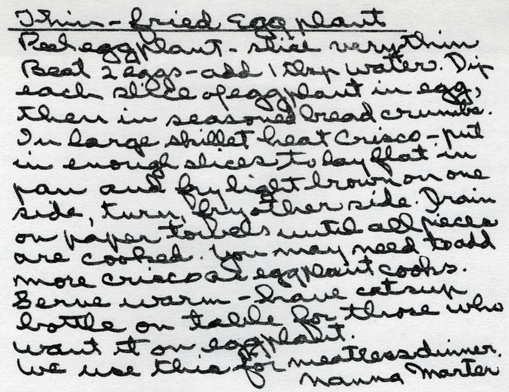 Thin-fried Eggplant
Peel eggplant - slice very thin
Beat 2 eggs - add 1 tbsp water. Dip
each slice of eggplant in egg,
then in seasoned bread crumbs.
In large skillet heat Crisco - put
in enough slices to lay flat in
pan and fry light brown on one
side, turn, fry other side. Drain
on paper towels until all pieces
are cooked. You may need to add
more crisco as eggplant cooks.
Serve warm - have catsup
bottle on table for those who
want it on eggplant.
We use this for meatless dinner.
Nanna Marter